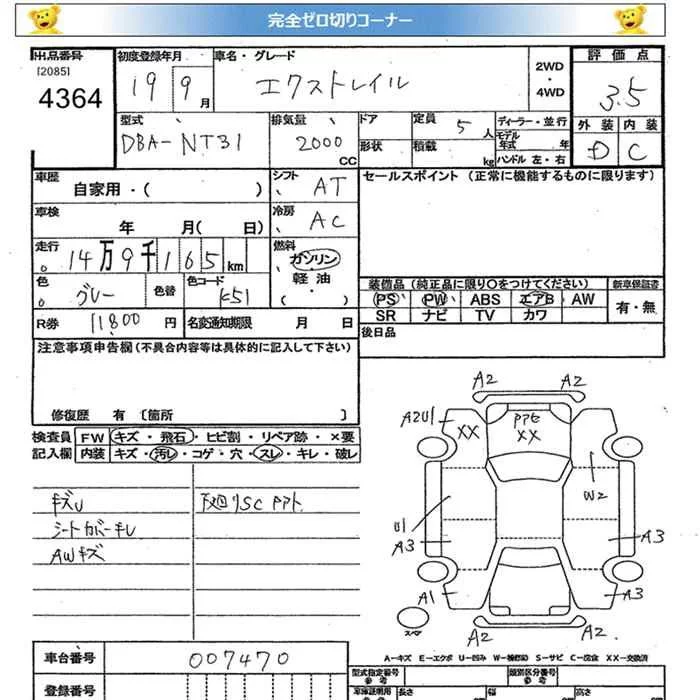 完全ゼロ切りコーナー
出品番号
[2085]
4364
初度登録年月
19 9月
車名・グレード
エクストレイル
2WD
・
4WD
評価点
3.5
外装 内装
D C
型式
DBA-NT31
排気量
2000
CC
ドア
形状
定員
5人
積載
kg
ディーラー・並行
モデル
年式 年
ハンドル 左・右
車歴
自家用・( )
シフト
AT
セールスポイント (正常に機能するものに限ります)
車検
年 月( 日)
冷房
AC
走行
14万9千165km
燃料
ガソリン
軽油
・( )
色
グレー
色替
色コード
K51
装備品(純正品に限り○をつけてください)
PS PW ABS エアB AW
SR ナビ TV カワ
新車保証書
有・無
R券 11800円
名変通知期限 月 日
後日品
注意事項申告欄(不具合内容等は具体的に記入して下さい)
修復歴 有 [箇所 ]
検査員
記入欄
FW キズ・飛石・ヒビ割・リペア跡・×要
内装 キズ・汚レ・コゲ・穴・スレ・キレ・破レ
キズU
シートカバーキレ
AWキズ
下廻りSC PPト
A2 A2
A2U1
XX
PPE
XX
W2
U1
A3
A3
A1
A3
スペア
A2 A2
A-キズ E-エクボ U-凹み W-補修跡 S-サビ C-腐食 XX-交換済
車台番号
007470
登録番号
型式指定番号
参考
類別区分番号
参考
車庫証明用
参考
長さ
幅
高さ